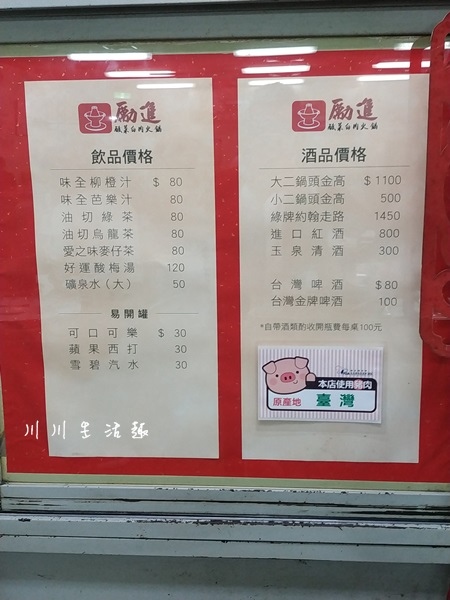 勵進
酸菜白肉火鍋
飲品價格
味全柳橙汁 $ 80
味全芭樂汁 80
油切綠茶 80
油切烏龍茶 80
愛之味麥仔茶 80
好運酸梅湯 120
礦泉水(大) 50
易開罐
可口可樂 $ 30
蘋果西打 30
雪碧汽水 30
川川生活趣
勵進
酸菜白肉火鍋
酒品價格
大二鍋頭金高 $1100
小二鍋頭金高 500
綠牌約翰走路 1450
進口紅酒 800
玉泉清酒 300
台灣啤酒 $80
台灣金牌啤酒 100
*自帶酒類酌收開瓶費每桌100元
本店使用豬肉
原產地 臺灣